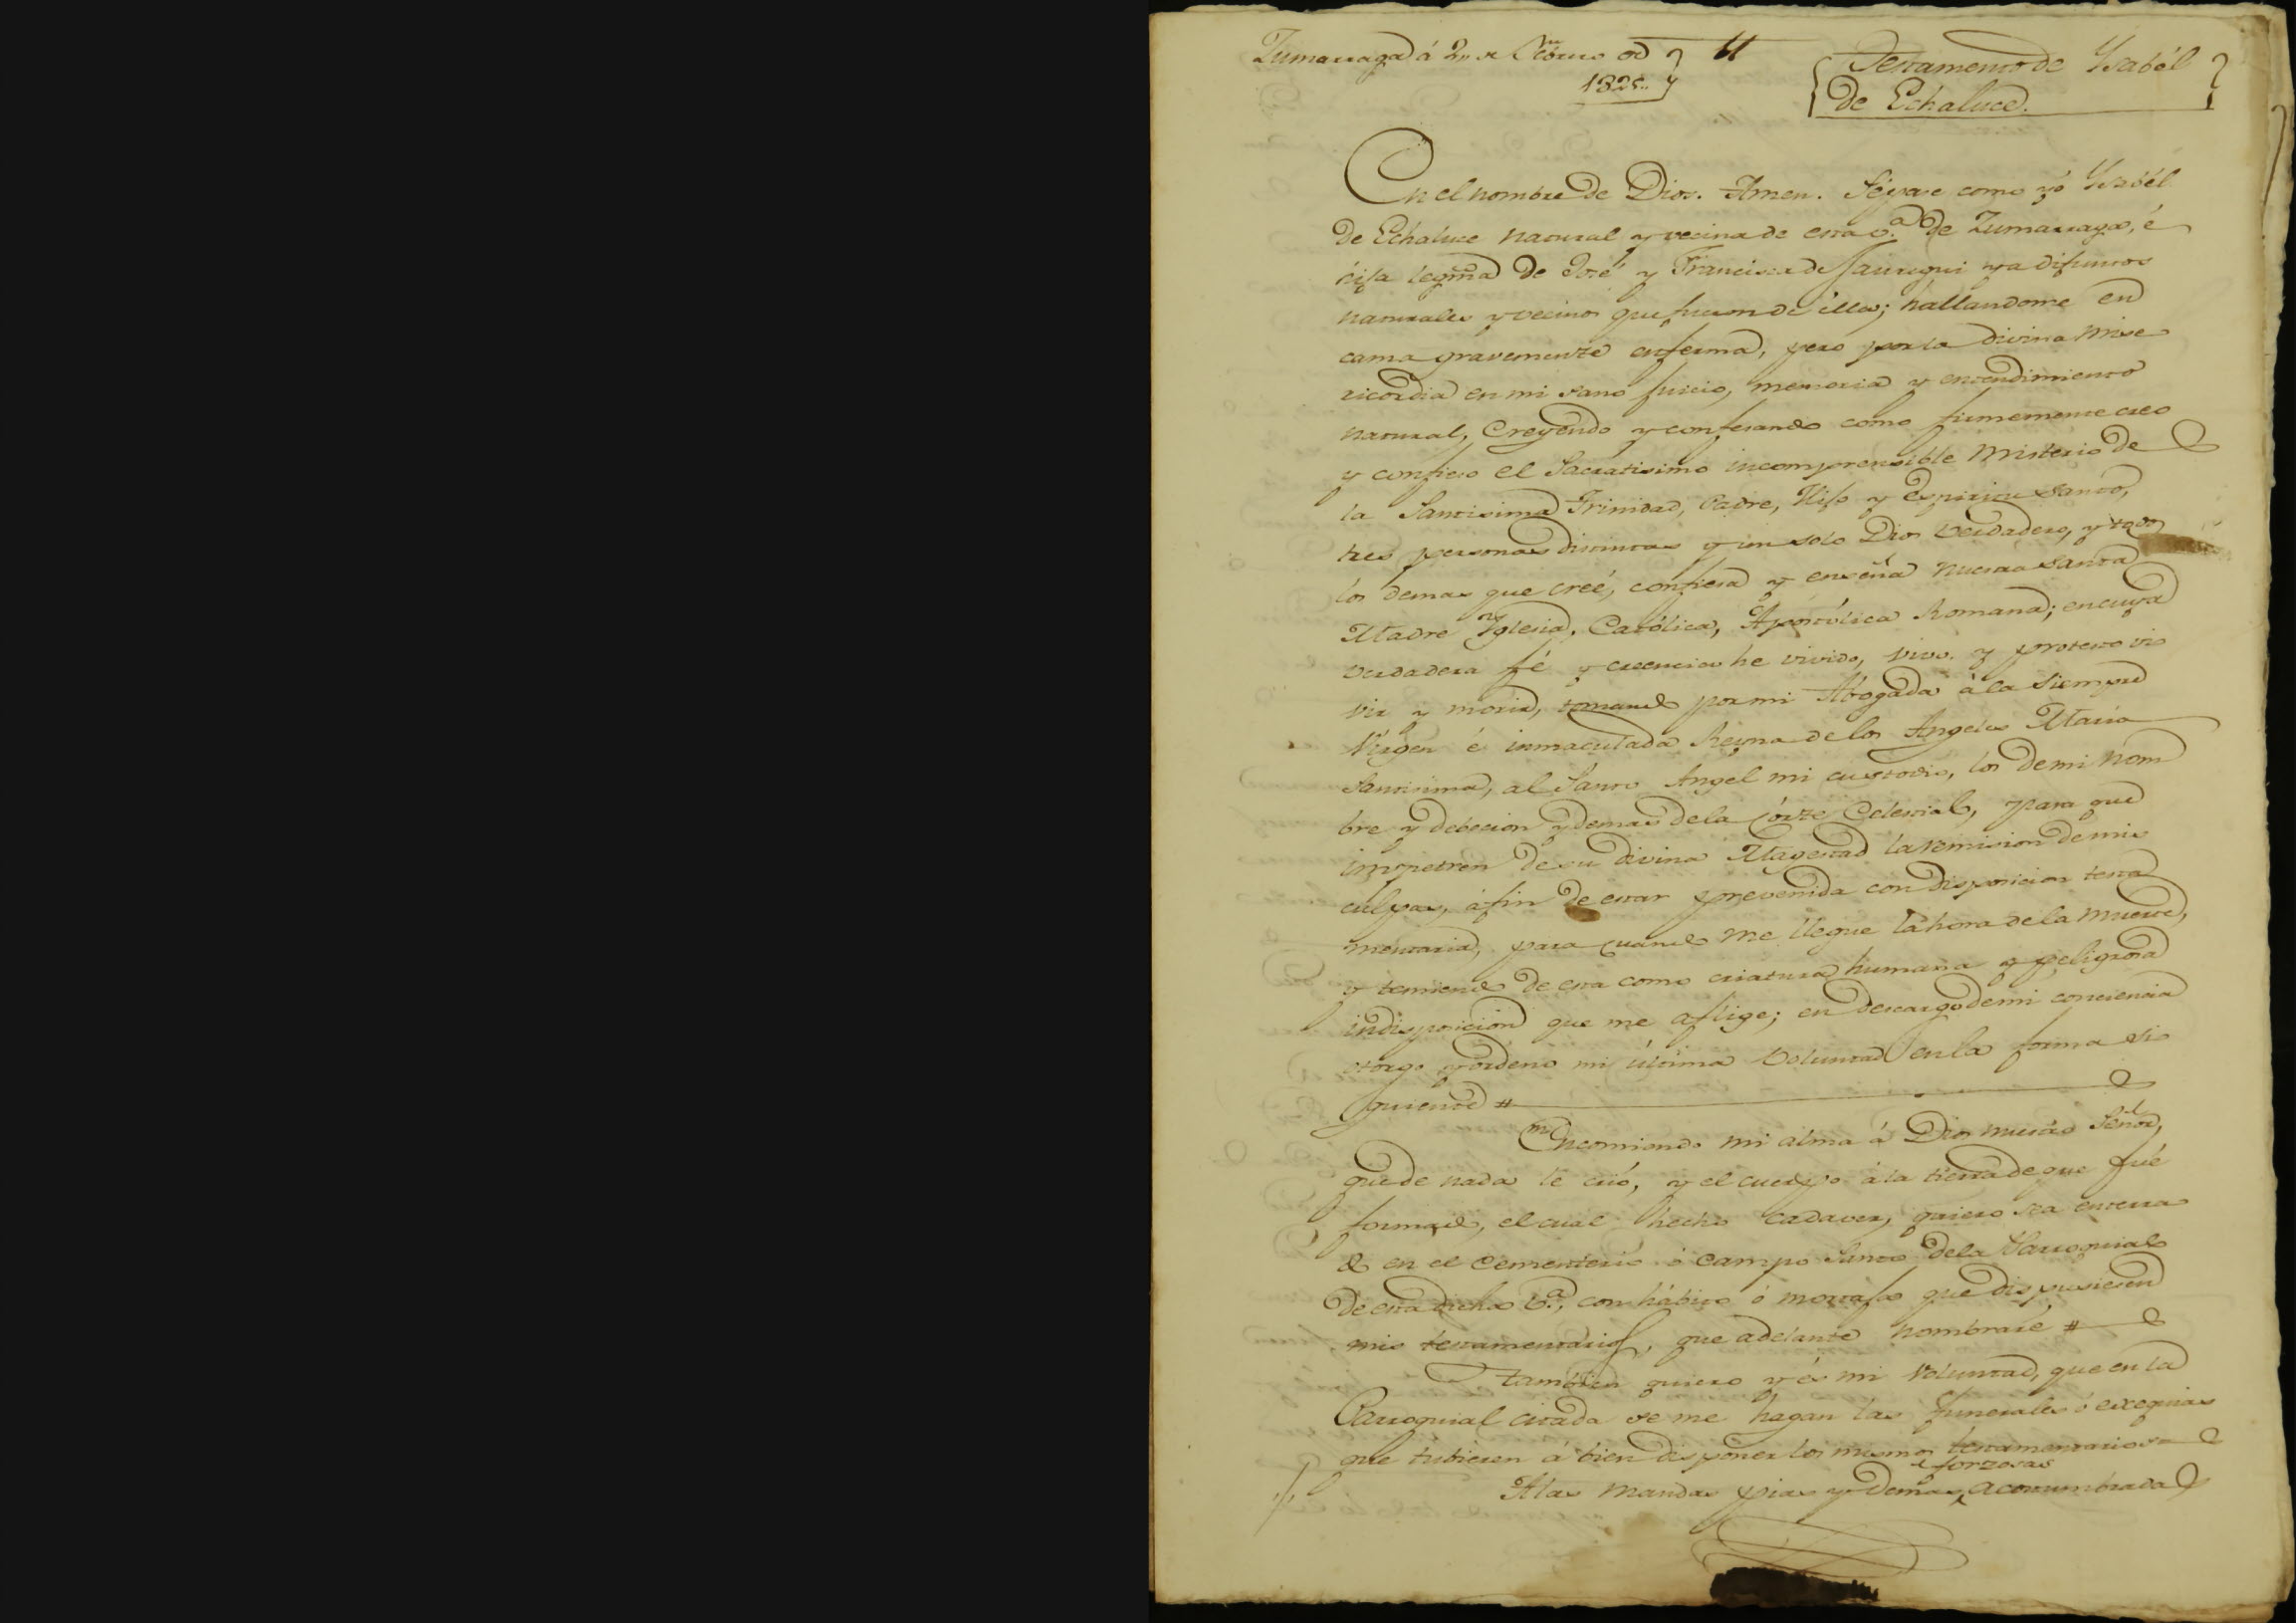 Zumarraga á 2,, de Febrero de
1825..
11
Testamento de Ysabél
de Echaluce.
En el nombre de Dios. Amen. Sépase como yó Ysabél
de Echaluce natural y vecina de esta v.ª de Zumarraga, é
hija legma de José y Francisca de Jauregui ya difuntos
naturales y vecinos que fueron de élla; hallandome en
cama gravemente enferma, pero por la divina mise
ricordia en mi sano juicio, memoria y entendimiento
natural, Creyendo y confesando como firmemente creo
y confieso el Sacratisimo incomprensible Misterio de
la Santisima Trinidad, Padre, Hijo y Espiritu Santo,
tres personas distintas y un solo Dios verdadero, y todos
los demas que creé, confiesa y enseña nuestra santa
Madre Yglesia, Católica, Apostólica Romana; en cuya
verdadera fé y creencia he vivido, vivo y protesto vi
vir y morir, tomando por mi Abogada á la siempre
Virgen é inmaculada Reyna de los Angeles Maria
Santisima, al Santo Angel mi custodio, los de mi nom
bre y debocion y demas de la Córte Celestial, para que
impetren de su divina Magestad la remision de mis
culpas, á fin de estar prevenida con disposicion testa
mentaria, para cuando me llegue la hora de la muerte,
y temiendo de esta como criatura humana y peligrosa
indisposicion que me aflige; en descargo de mi conciencia
otorgo y ordeno mi última voluntad en la forma si
guiente #
Encomiendo mi alma á Dios nuestro Señor,
que de nada le crió, y el cuerpo á la tierra de que fué
formado, el cual hecho cadaver, quiero sea enterra
do en el Cementerio ó Campo Santo de la Parroquial
de esta dicha v.ª, con hábito ó mortaja que dispusiesen
mis testamentarios, que adelante nombraré #
Tambien quiero y és mi voluntad, que en la
Parroquial citada se me hagan las funerales ó exequias
que tubieren á bien disponer los mismos testamentarios
forzosas
A las mandas pias y demas acostumbradas